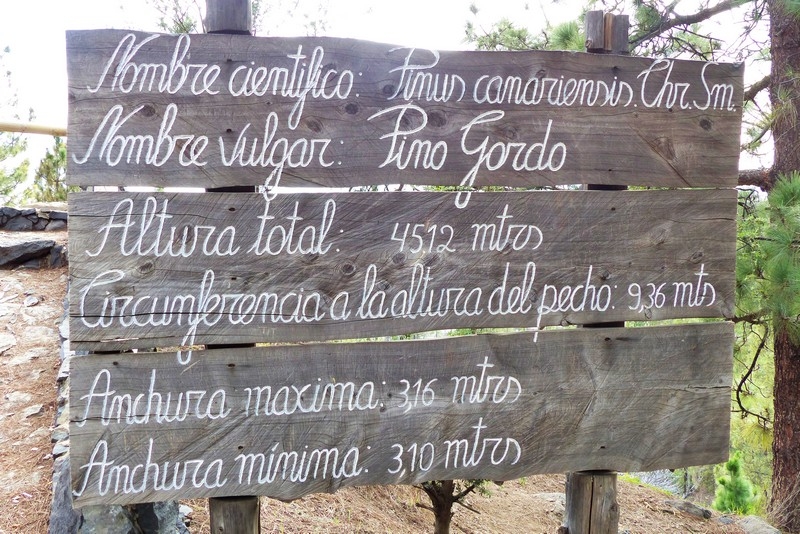 Nombre científico: Pinus canariensis. Chr. Sm.
Nombre vulgar: Pino Gordo
Altura total: 45,12 mtrs
Circunferencia a la altura del pecho: 9,36 mts
Anchura maxima: 3,16 mtrs
Anchura mínima: 3,10 mtrs